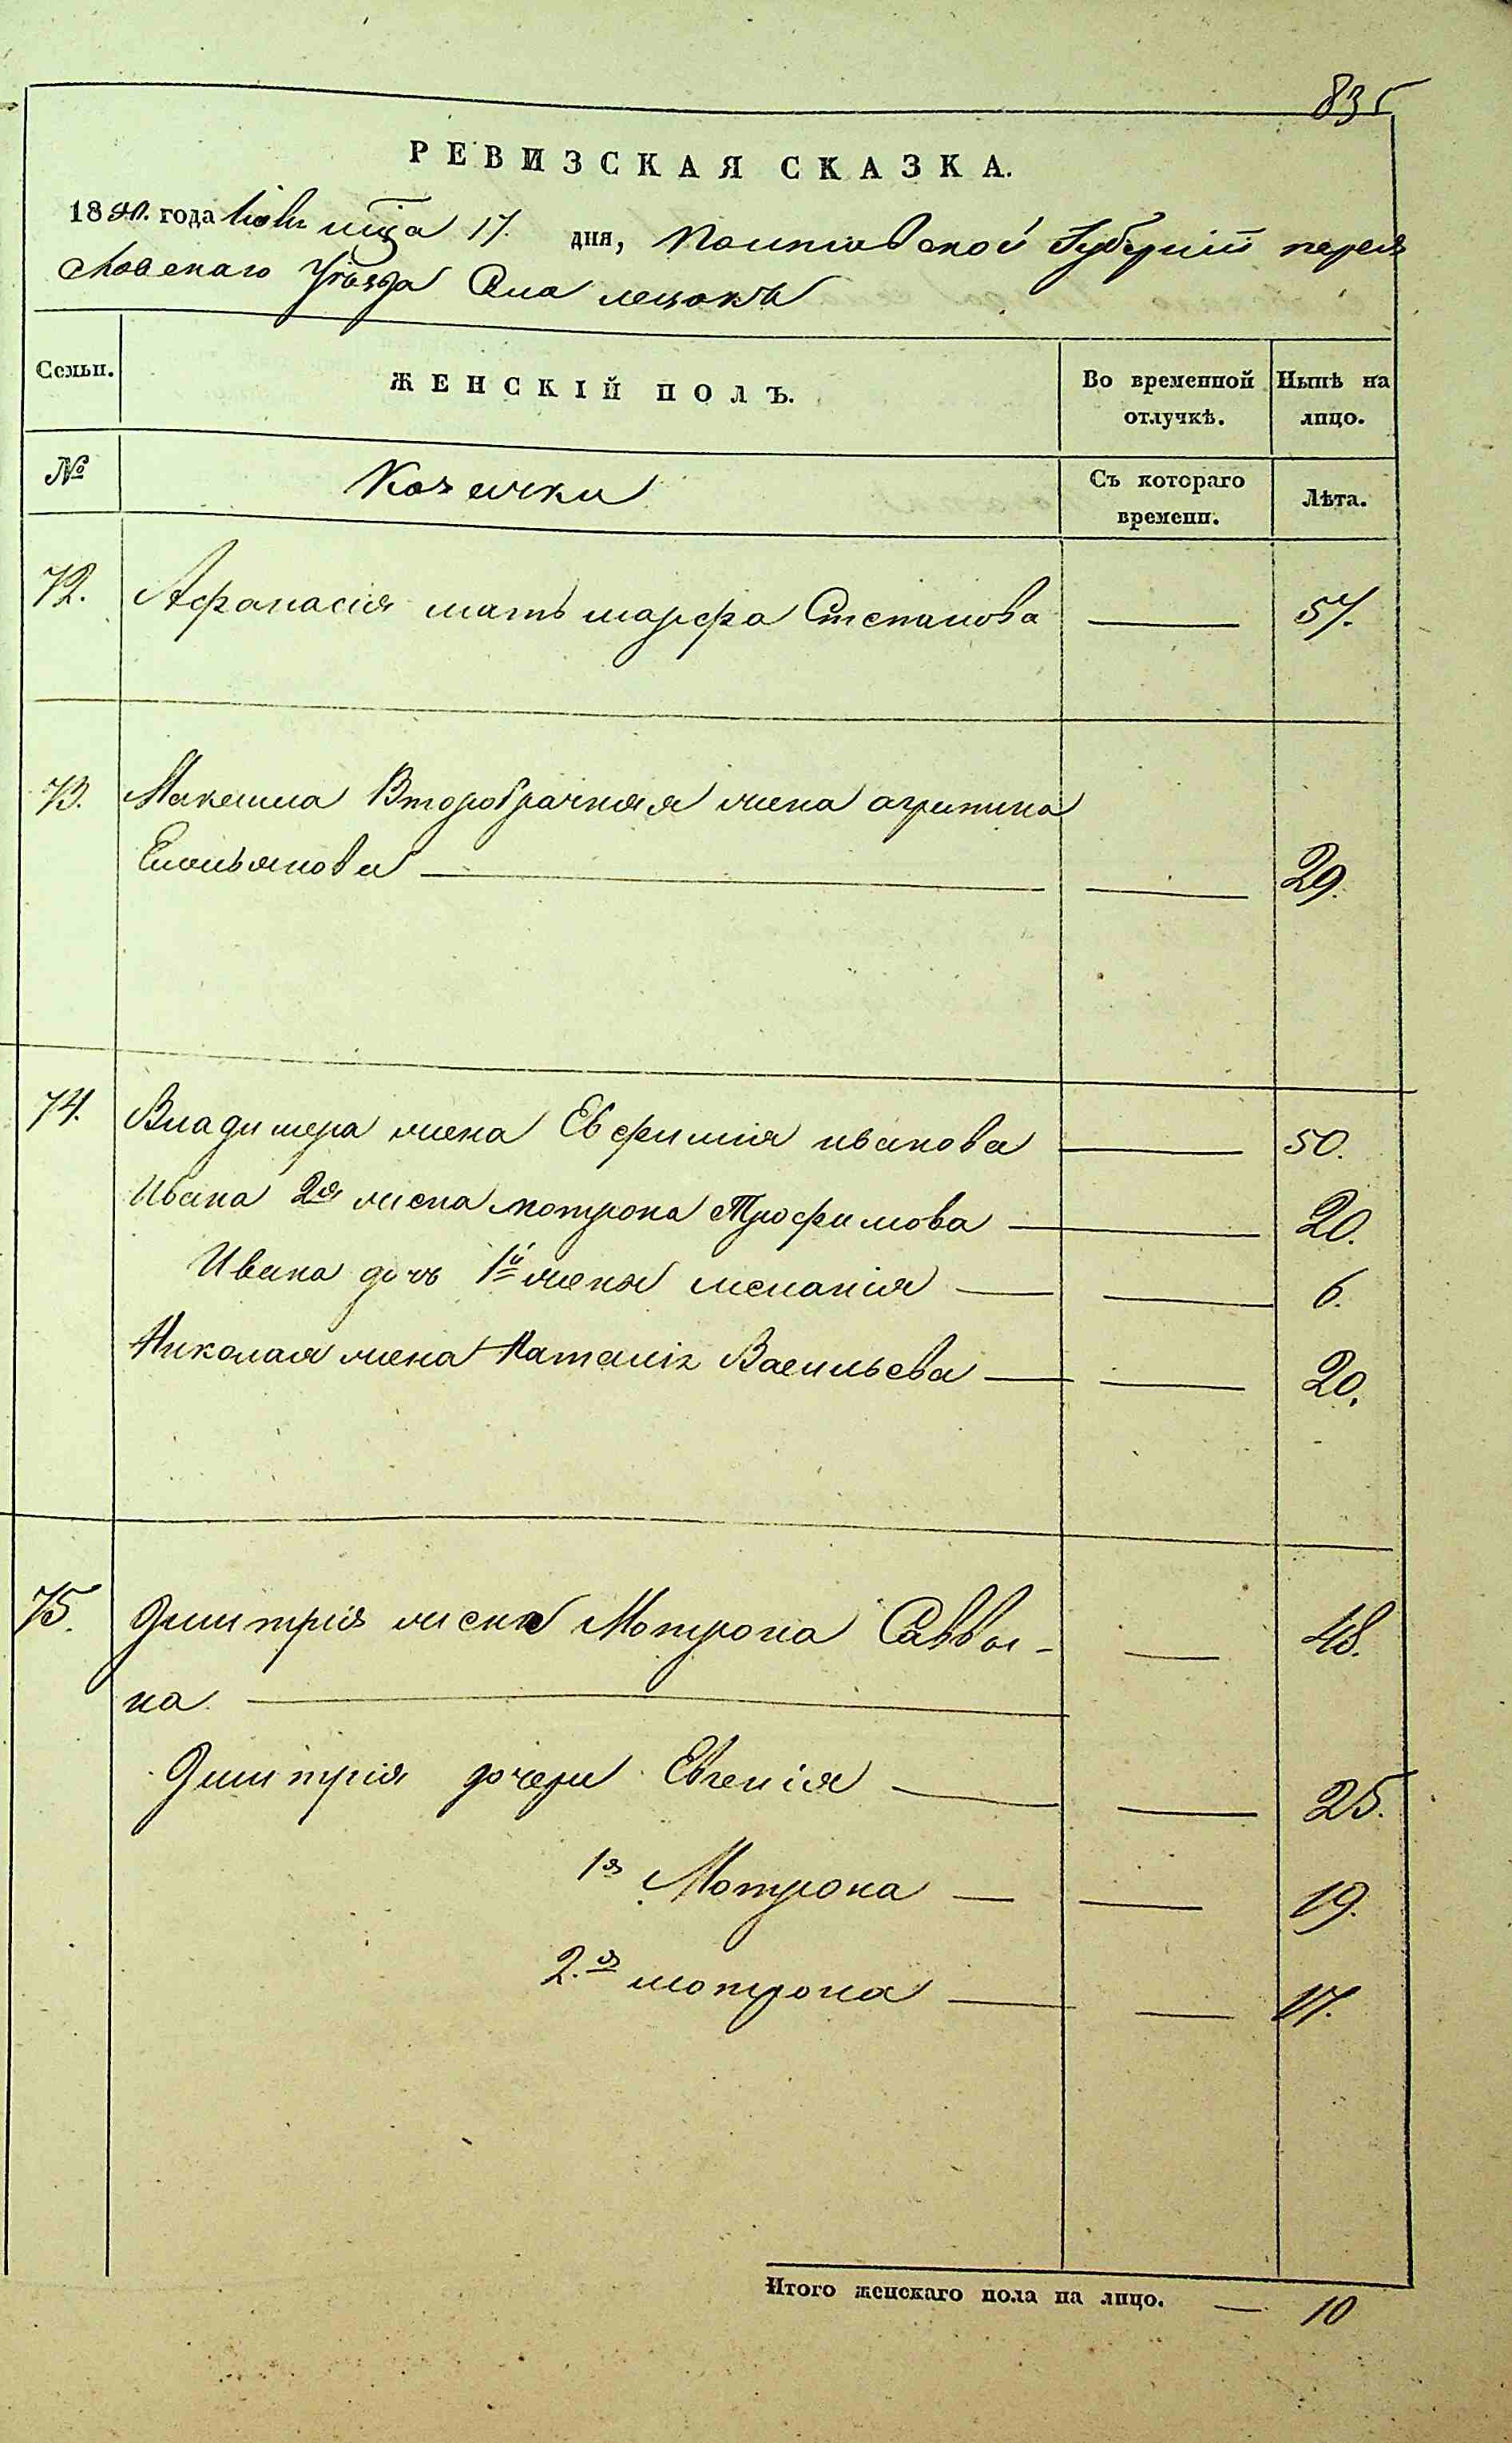 835
РЕВИЗСКАЯ СКАЗКА.
18 года мца 17. дня, Полтавской Губернии переяс
лавскаго Уѣзда Села лецокъ
Семьи. ЖЕНСКІЙ ПОЛЪ. Во временной отлучкѣ. Нынѣ на лицо.
№ Козачки Съ котораго времени. Лѣта.
72. Афанасія мать марфа Степанова — 57.
73. Максима Второбрачная жена агрипина
Емельянова — — 29.
74. Владимера жена Евфимия иванова — 50.
Ивана 2я жена мотрона Трофимова — 20.
Ивана дочь 1й жены меланія — — 6.
Николая жена Наталія Васильева — — 20.
75. Дмитрія жена Мотрона Саввы- — 48.
на —
Дмитрія дочери Евгенія — — 25.
1я Мотрона — — 19.
2.я мотрона — — 17.
Итого женскаго пола на лицо. — 10